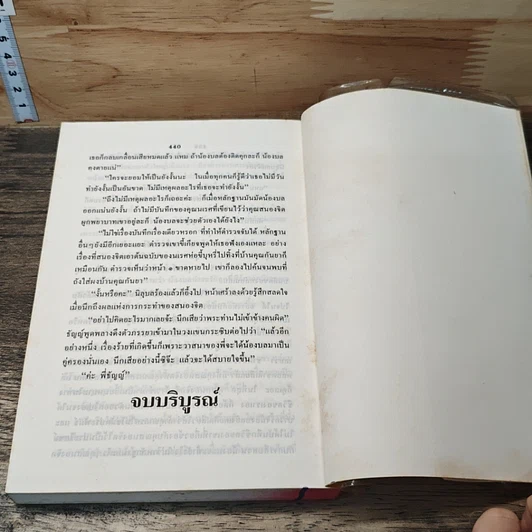 440
เธอก็กลบเกลื่อนเสียหมดแล้ว แหม ถ้าน้องบลต้องติดคุกละก็ น้องบล
คงตายแน่"
"ใครจะยอมให้เป็นยังงั้นนะ ในเมื่อทุกคนก็รู้ดีว่าเธอไม่มีวัน
ทำยังงั้นเป็นอันขาด ไม่มีเหตุผลอะไรที่เธอจะทำยังงั้น"
"ถึงไม่มีเหตุผลอะไรก็เถอะค่ะ ก็เมื่อหลักฐานมันมัดน้องบล
ออกแน่นยังงั้น ถ้าไม่มีบันทึกของคุณนเรศที่เขียนไว้ว่าคุณสนองจิต
ผูกพยาบาทเขาอยู่ละก็ น้องบลจะช่วยตัวเองได้ยังไง"
"ไม่ใช่เรื่องบันทึกเรื่องเดียวหรอก ที่ทำให้ตำรวจจับได้ หลักฐาน
อื่นๆยังมีอีกเยอะแยะ ตำรวจเขาขี้เกียจพูดให้เธอฟังเองแหละ อย่าง
เรื่องที่สนองจิตเอาต้นฉบับของนเรศห่อขี้บุหรี่ไปทิ้งที่บ้านคุณกันยาก็
เหมือนกัน ตำรวจเห็นว่าหน้า ๑ ขาดหายไป เขาก็ลองไปค้นจนพบที่
ถังใส่ผงบ้านคุณกันยา"
"งั้นหรือคะ" นิลุบลร้องแล้วก็อึ้งไป หน้าเศร้าลงด้วยรู้สึกสลดใจ
เมื่อนึกถึงผลแห่งการกระทำของสนองจิต
"อย่าไปคิดอะไรมากเลยจ้ะ นึกเสียว่าพระท่านไม่เข้าข้างคนผิด"
ธัญญ์พูดพลางดึงตัวภรรยาเข้ามาในวงแขนกระซิบต่อไปว่า "แล้วก็อีก
อย่างหนึ่ง เรื่องร้ายที่เกิดขึ้นก็เพราะวาสนาของพี่จะได้น้องบลมาเป็น
คู่ครองนั่นเอง นึกเสียอย่างนี้ซิจ๊ะ แล้วจะได้สบายใจขึ้น"
"ค่ะ พี่ธัญญ์"
จบบริบูรณ์
4
3
2
1